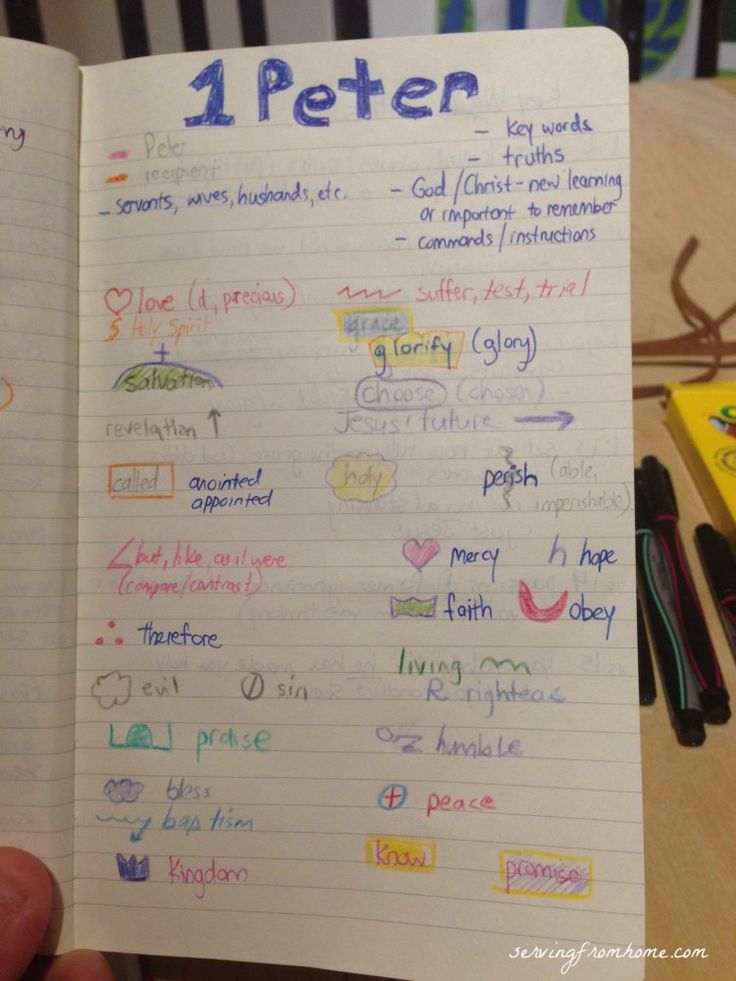 1 Peter
- Peter
- recipient
- servants, wives, hushands, etc.
- Key words
- truths
- God / Christ - new learning
or important to remember
- commands / instructions
love (d, precious)
suffer, test, trial
Holy Spirit
grace
glorify (glory)
salvation
choose (chosen)
revelation ↑
Jesus' future →
called
anointed
appointed
holy
perish (able,
imperishable)
but, like, as it were
(compare/contrast)
mercy
h hope
faith
obey
∴ therefore
living
evil
sin
R righteas
praise
humble
bless
peace
baptism
Kingdom
Know
promise
servingfromhome.com